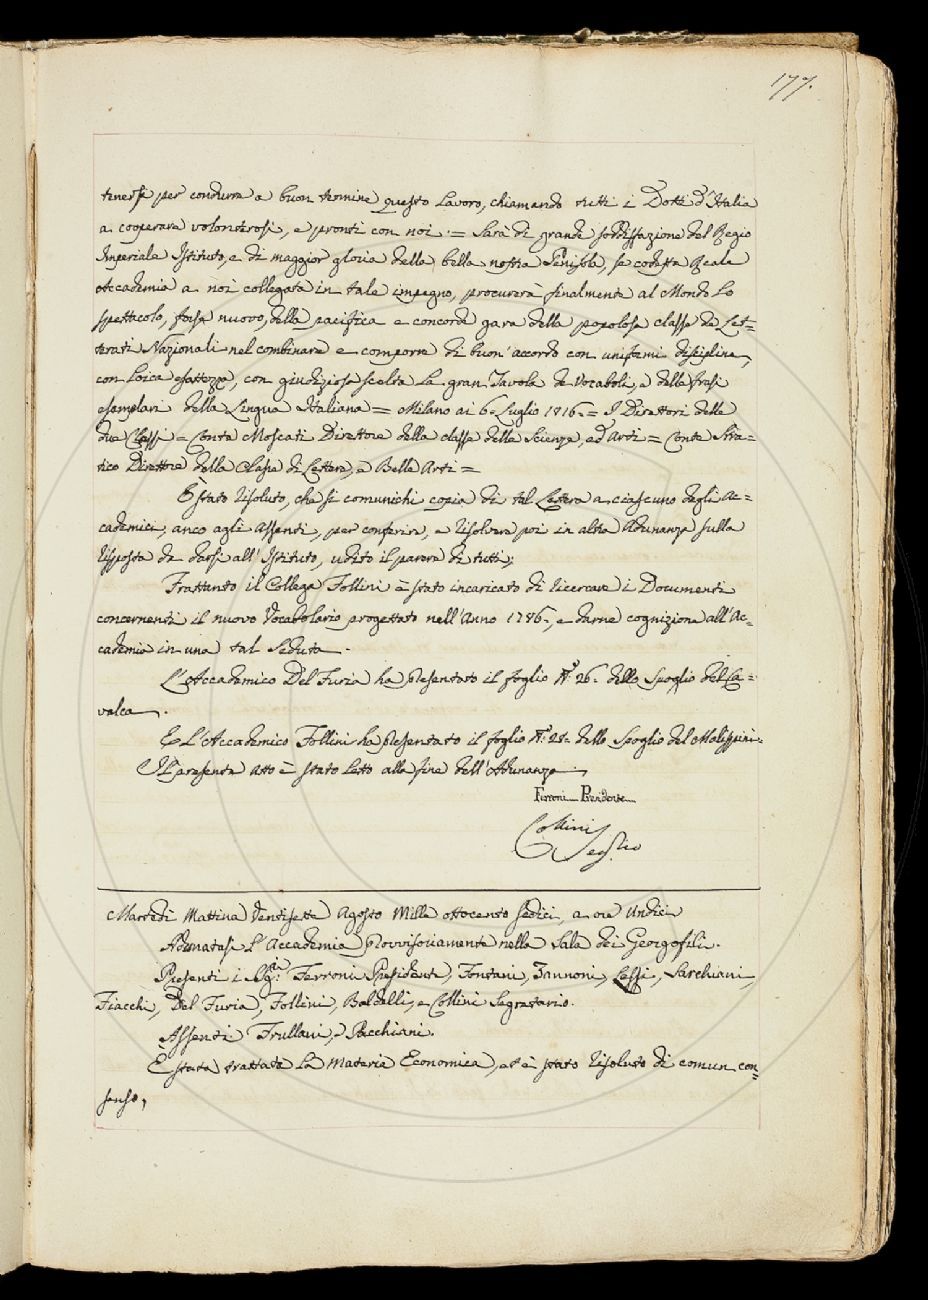 177.
tenersi per condurre a buon termine questo Lavoro, chiamando tutti i Dotti d'Italia
a cooperare volonterosi, e pronti con noi. = Sarà di grande soddisfazione del Regio
Imperiale Istituto, e di maggior gloria della bella nostra Penisola, se codesta Reale
Accademia a noi collegata in tale impegno, procurerà finalmente al Mondo Lo
spettacolo, forse nuovo, della pacifica e concorde gara della popolosa classe de Let=
terati Nazionali nel combinare e comporre di buon'accordo con uniformi discipline,
con Loica esattezza, con giudiziosa scelta La gran Tavola de Vocaboli, e delle frasi
esemplari della Lingua Italiana = Milano ai 6. Luglio 1816. = I Direttori delle
due Classi = Conte Moscati Direttore della classe delle Scienze, ed Arti = Conte Stra=
tico Direttore della Classe di Lettere, e Belle Arti =
È stato risoluto, che si comunichi copia di tal Lettera a ciascuno degli Ac=
cademici, anco agli Assenti, per conferire, e risolvere poi in altra Adunanza sulla
risposta da darsi all'Istituto, udito il parere di tutti;
Frattanto il Collega Follini è stato incaricato di ricercare i Documenti
concernenti il nuovo Vocabolario progettato nell'Anno 1786., e darne cognizione all'Ac=
cademia in una tal Seduta.
L'Accademico Del Furia ha presentato il foglio N.° 26. dello Spoglio del Ca=
valca.
E L'Accademico Follini ha presentato il foglio N.° 28. dello Spoglio del Malispini.
Il presente Atto è stato Letto alla fine dell'Adunanza.
Ferroni Presidente
Collini Segrio
Martedì Mattina Ventisette Agosto Mille ottocento sedici, a ore Undici
Adunatasi L'Accademia provvisoriamente nella Sala dei Georgofili.
Presenti i Sigri. Ferroni Presidente, Fontani, Zannoni, Lessi, Sarchiani,
Fiacchi, Del Furia, Follini, Baldelli, e Collini Segretario.
Assenti Frullani, e Pacchiani.
È stata trattata La Materia Economica, ed è stato risoluto di comun con=
senso,